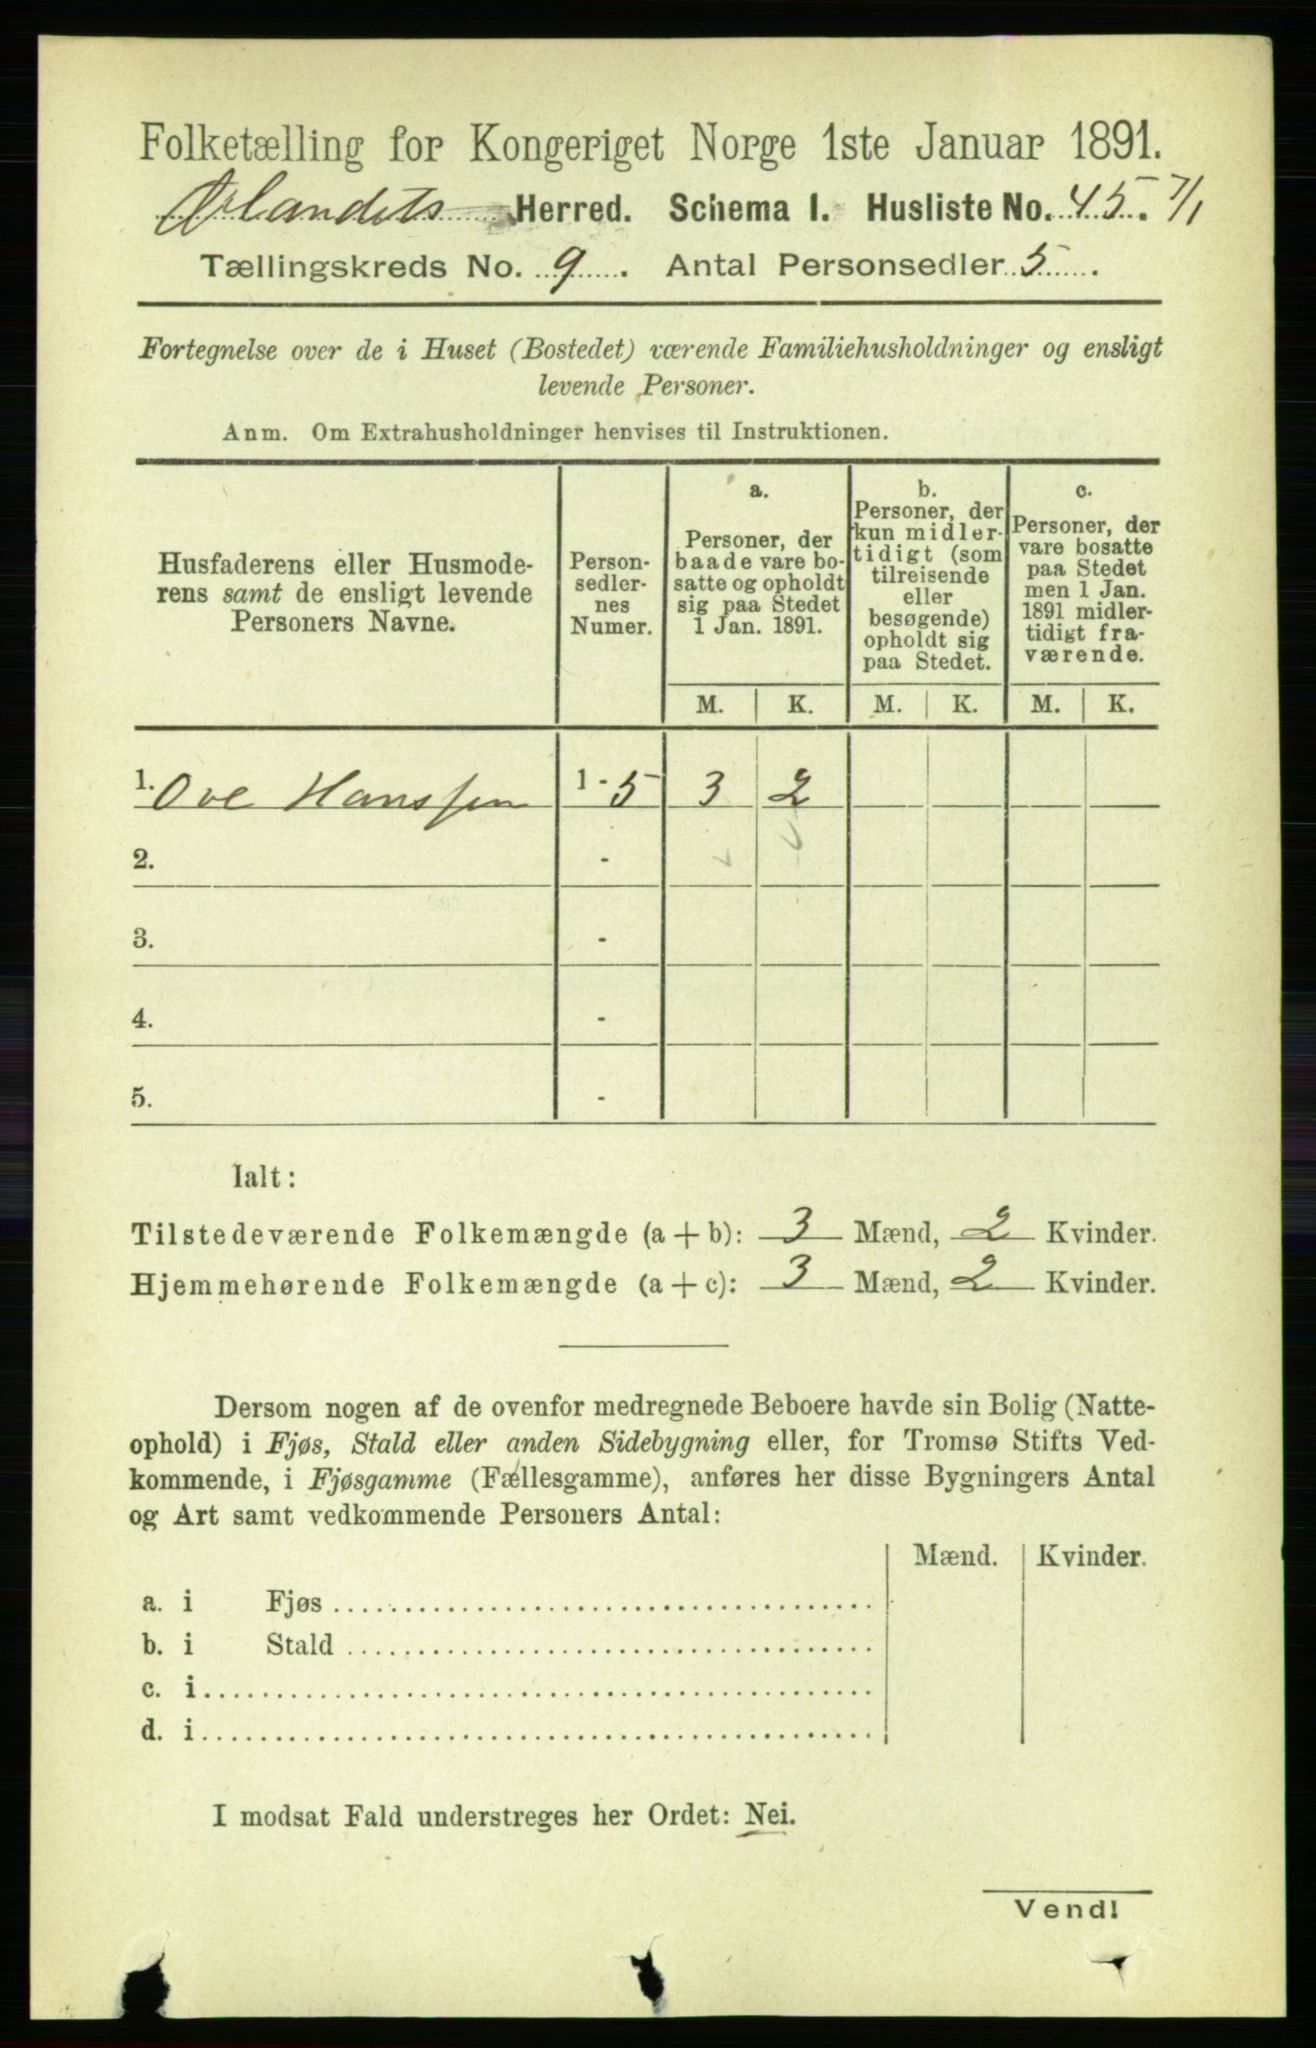 Folketælling for Kongeriget Norge 1ste Januar 1891.
Ørlandets Herred. Schema I. Husliste No. 45. 7/1
Tællingskreds No. 9. Antal Personsedler 5.
Fortegnelse over de i Huset (Bostedet) værende Familiehusholdninger og ensligt
levende Personer.
Anm. Om Extrahusholdninger henvises til Instruktionen.
Husfaderens eller Husmode-
rens samt de ensligt levende
Personers Navne.
Person-
sedler-
nes
Numer.
a.
Personer, der
baade vare bo-
satte og opholdt
sig paa Stedet
1 Jan. 1891.
b.
Personer, der
kun midler-
tidigt (som
tilreisende
eller
besøgende)
opholdt sig
paa Stedet.
c.
Personer, der
vare bosatte
paa Stedet
men 1 Jan.
1891 midler-
tidigt fra-
værende.
M. K. M. K. M. K.
1. Ove Hanssen 1 - 5 3 2
2. -
3. -
4. -
5. -
Ialt:
Tilstedeværende Folkemængde (a + b): 3 Mænd, 2 Kvinder.
Hjemmehørende Folkemængde (a + c): 3 Mænd, 2 Kvinder.
Dersom nogen af de ovenfor medregnede Beboere havde sin Bolig (Natte-
ophold) i Fjøs, Stald eller anden Sidebygning eller, for Tromsø Stifts Ved-
kommende, i Fjøsgamme (Fællesgamme), anføres her disse Bygningers Antal
og Art samt vedkommende Personers Antal:
Mænd. Kvinder.
a. i Fjøs
b. i Stald
c. i
d. i
I modsat Fald understreges her Ordet: Nei.
Vend!